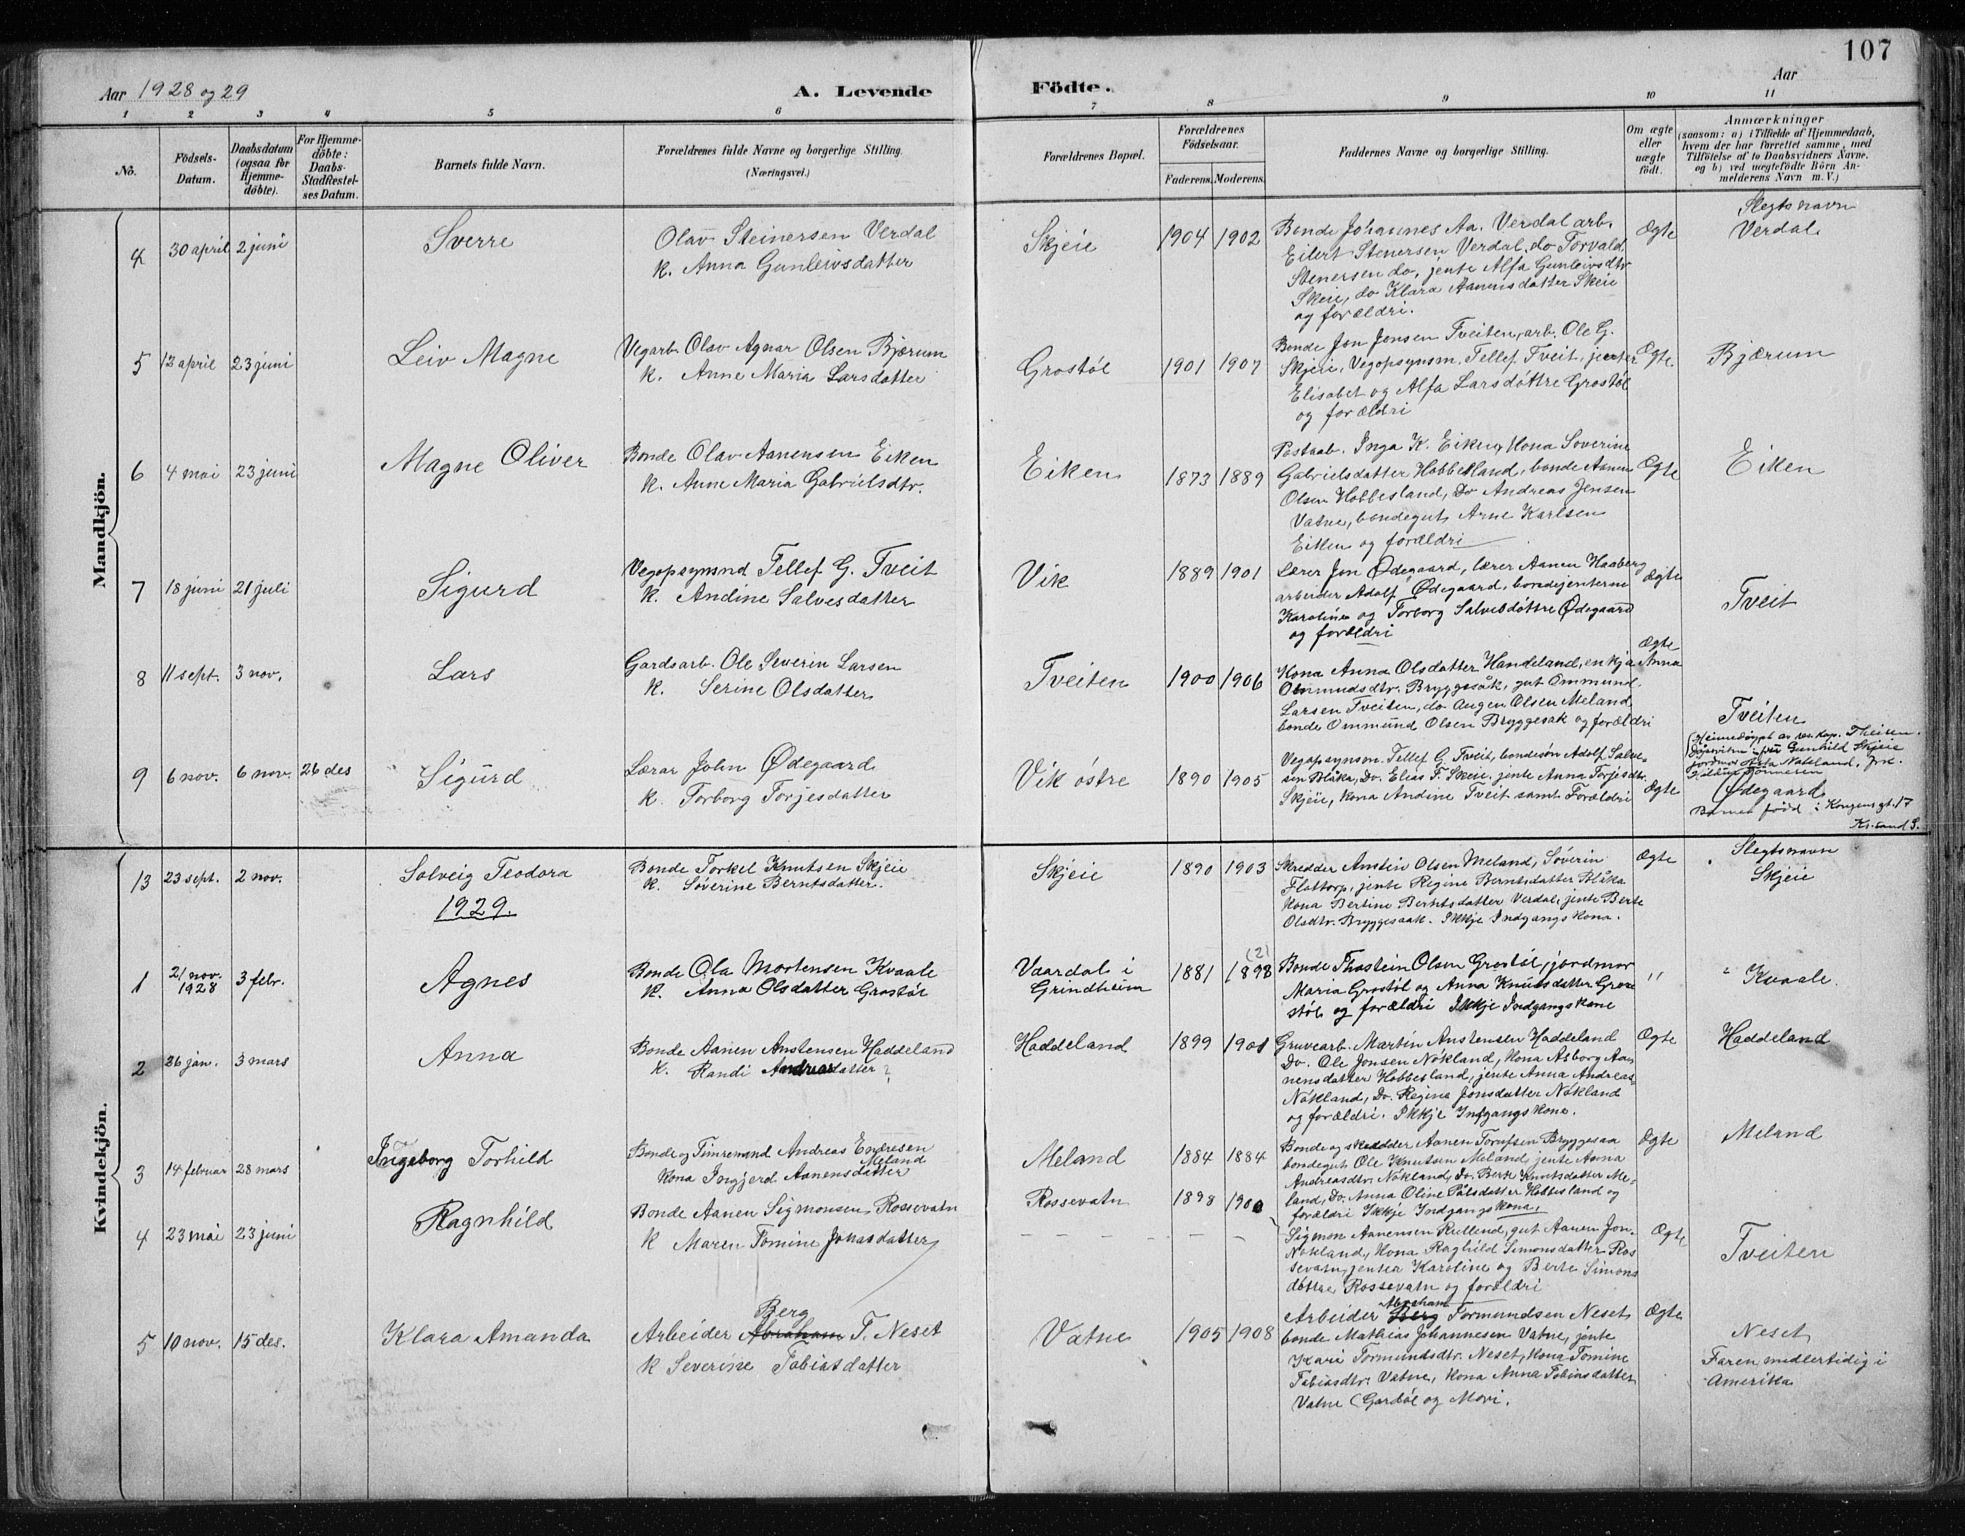 107
Aar 1928 og 29
A. Levende
Födte.
Aar
1 2 3 4 5 6 7 8 9 10 11
No.
Födsels-
Datum.
Daabsdatum
(ogsaa for
Hjemme-
döbte).
For Hjemme-
döbte:
Daabs-
Stadfæstel-
ses Datum.
Barnets fulde Navn.
Forældrenes fulde Navne og borgerlige Stilling.
(Næringsvei.)
Forældrenes Bopæl.
Forældrenes
Födselsaar.
Faderens. Moderens.
Faddernes Navne og borgerlige Stilling.
Om ægte
eller
uægte
födt.
Anmærkninger
(saasom: a) i Tilfælde af Hjemmedaab,
hvem der har forrettet samme, med
Tilföielse af to Daabsvidners Navne.
og b) ved uægtefödte Börn An-
melderens Navn m. V.)
Mandkjön.
4 30 april 2 juni
Sverre
Olav Steinersen Verdal
k. Anna Gunleivsdatter
Skjeie
1904 1902
Bonde Johannes Aa. Verdal arb.
Eilert Stenersen Verdal, do Torvald
Stenersen do, jente Alfa Gunleivsdtr
Skeie, do Klara Aanensdatter Skeie
og forældri.
Ægte
Slegtsnavn
Verdal.
5 12 april 23 juni
Leiv Magne
Vegarb. Olav Agnar Olsen Bjærum
k. Anne Maria Larsdatter
Grostöl
1901 1907
Bonde Jon Jensen Tveiten, arb. Ole G.
Skjeie, Vegopsynsm. Tellef Tveit, jenter
Elisabet og Alfa Larsdöttre Grostöl
og forældri
Ægte
Bjærum
6 4 mai 23 juni
Magne Oliver
Bonde Olav Aanensen Eiken
k. Anne Maria Gabrielsdtr.
Eiken
1873 1889
Postaab. Inga K. Eiken, Kona Soverine
Gabrielsdatter Hobbesland, bonde Aanen
Olsen Hobbesland, Do Andreas Jensen
Vatne, bondegut Arne Karlsen
Eiken og forældri
Ægte
Eiken
7 18 juni 21 juli
Sigurd
Vegopsynsmd Tellef G. Tveit
k. Andine Salvesdatter
Vik
1889 1901
Lærer Jon Ødegaard, lærer Aanen Haaberg
arbeider Adolf Ødegaard, bondejenterne
Karoline og Torborg Salvesdöttre Ødegaard
og forældri
Ægte
Tveit
8 11 sept. 3 nov.
Lars
Gardsarb. Ole Severin Larsen
k. Serine Olsdatter
Tveiten
1900 1906
Kona Anna Olsdatter Handeland, enkja Anna
Ommundsdtr. Bryggesåk, gut Ommund
Larsen Tveiten, do Augen Olsen Meland
bonde Ommund Olsen Bryggesak og forældri
Ægte
Tveiten
9 6 nov. 6 nov. 26 des
Sigurd
Lærar John Ødegaard
k. Torborg Torjesdatter
Vik östre
1890 1905
Vegopsynsm. Tellef G. Tveit, bondesön Adolf Salve-
sen Blåka, Do. Elias T. Skeie, jente Anna Torjesdtr.
Skjeie, kona Andine Tveit samt Forældri
Ægte
(Heimedöypt av res. kap. Theisen.
Gunhild Skjeie
Ødegaard
Barnet född i Kongens gt. 17
Kr.sand S.
Kvindekjön.
13 23 sept. 2 nov.
Solveig Teodora
Bonde Torkel Knutsen Skjeie
k. Söverine Berntsdatter.
Skjeie
1890 1903
Skredder Anstein Olsen Meland, Söverin
Flottorp, jente Regine Berntsdatter Blåka
kona Bertine Berntsdatter Verdal, jente Berte
Olsdtr. Bryggesaak. Ikkje Indgangskona.
Ægte
Slegtsnavn
Skjeie
1929.
1 21 nov. 1928 3 febr.
Agnes
Bonde Ola Mortensen Kvaale
k. Anna Olsdatter Grostöl
Vaardal i
Grindheim
1881 1898 (2)
Bonde Thostein Olsen Grostöl, jordmor
Maria Grostöl og Anna Knutsdatter Gro-
stöl og forældri Ikkje Indgangskone
"
" Kvaale.
2 26 jan. 3 mars
Anna
Bonde Aanen Anstensen Haddeland
k. Randi Andreasdatter ?
Haddeland
1899 1901
Gruvearb. Martin Anstensen Haddeland
Do. Ole Jonsen Nökland, kona Asborg Aa-
nensdatter Hobbesland, jente Anna Andreas-
Nökland, Do. Regine Jonsdatter Nökland
og forældri. Ikkje Indgangskone.
Ægte
Haddeland
3 14 februar 28 mars
Ingeborg Torhild
Bonde og Timremand Andreas Endresen
Meland
Kona Ingjerd Aanensdatter
Meland
1884 1884
Bonde og skredder Aanen Torufsen Bryggesaa
bondegut Ole Knutsen Meland jente Anna
Andreasdtr. Nökland, Do. Berte Knutsdatter Me-
land, Do. Anna Oline Pålsdatter Hobbesland og
forældri Ikkje Indgangskona.
Ægte
Meland
4 23 mai 23 juni
Ragnhild
Bonde Aanen Sigmonsen Rossevatn
k Maren Tomine Jonasdatter
Rossevatn
1898 1900
Sigmon Aanensen Rullend, gut Aanen Jon-
Nökland, Kona Raghild Simonsdatter Ros
sevatn, jentea Karoline og Berte Simons
döttre Rossevatn og forældri
Ægte
Tveiten
5 10 nov. 15 des.
Klara Amanda
Berg
Arbeider Abraham T. Neset
k Severine Tobiasdatter
Vatne
1905 1908
Abraham
Arbeider Berg Tormundsen Neset
bonde Mathias Johannesen Vatne, jente
Kari Tormundsdtr. Neset, Kona Tomine
Tobiasdtr. Vatne, Kona Anna Tobiasdatter
Vatne (Gardöl og Mori.
Ægte
Neset
Faren midlertidig i
Amerika